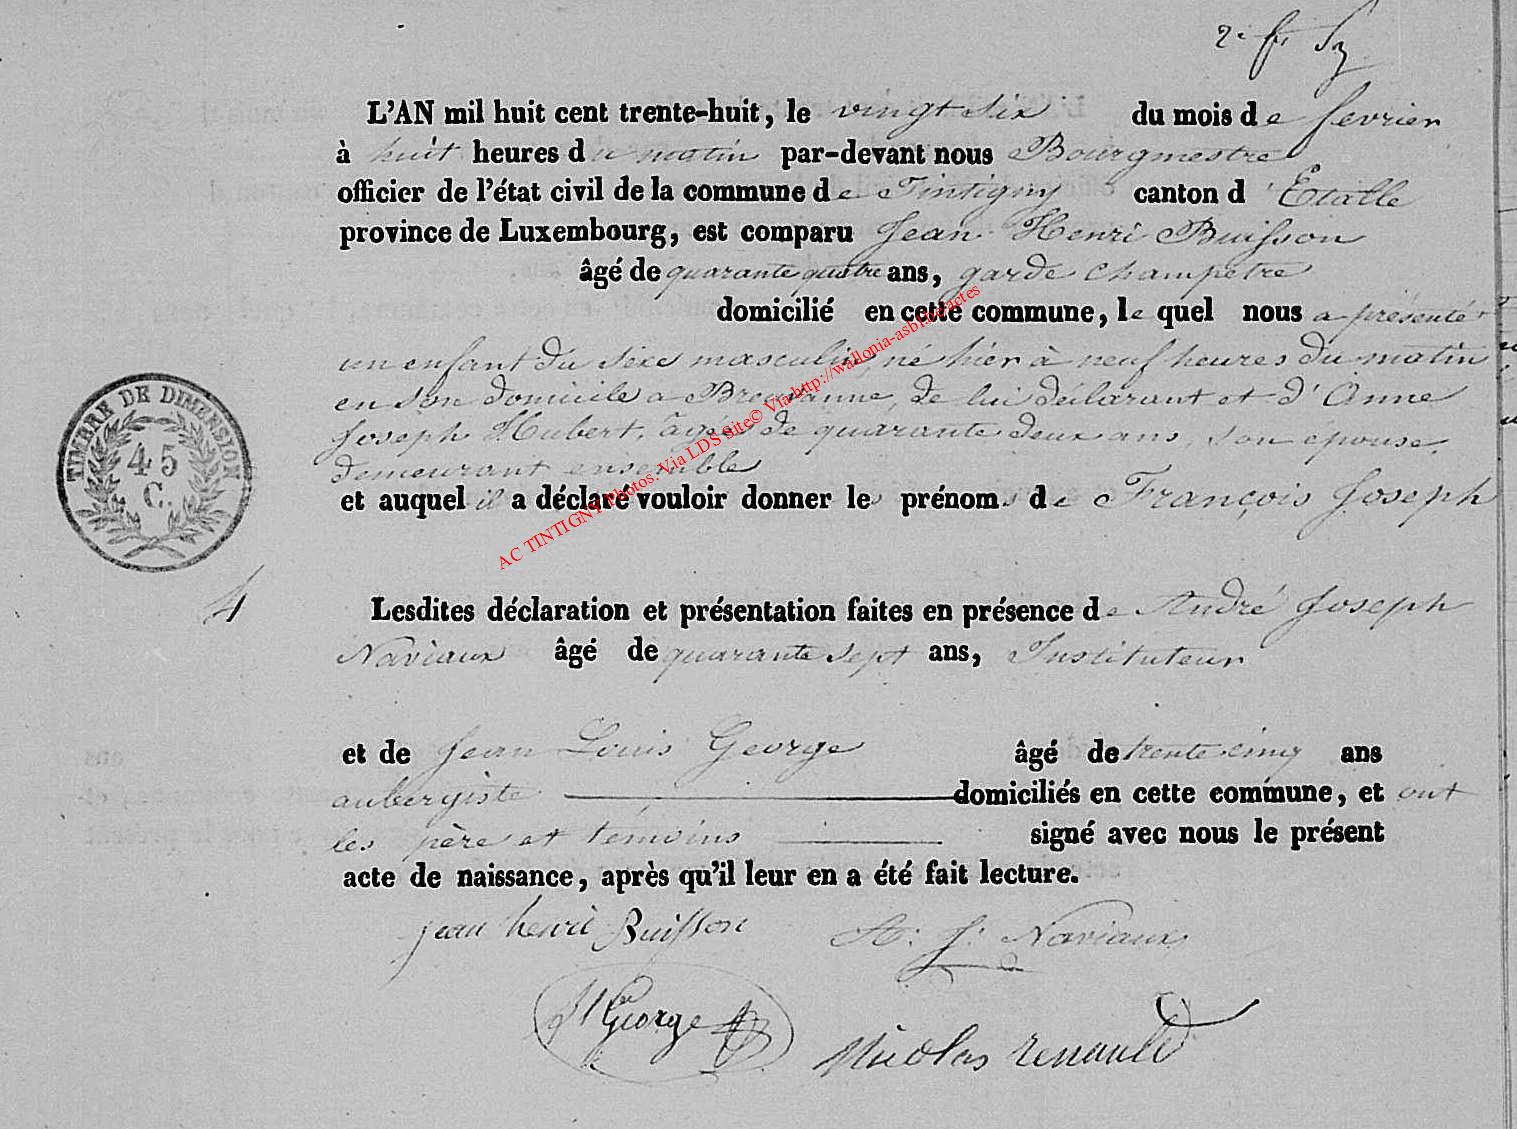 2e
L'AN mil huit cent trente-huit, le vingt six du mois de fevrier
à huit heures du matin par-devant nous Bourgmestre
officier de l'état civil de la commune de Tintigny canton d'Etalle
province de Luxembourg, est comparu Jean Henri Buisson
âgé de quarante quatre ans, garde champetre
domicilié en cette commune, le quel nous a présenté
un enfant du sexe masculin, né hier à neuf heures du matin
en son domicile a Breuvanne, de lui déclarant et d'Anne
Joseph Hubert, agée de quarante deux ans, son épouse,
demeurant ensemble
et auquel il a déclaré vouloir donner les prénoms de François Joseph
TIMBRE DE DIMENSION
45
C.
4
Lesdites déclaration et présentation faites en présence de André Joseph
Naviaux âgé de quarante sept ans, Instituteur
et de Jean Louis George âgé de trente cinq ans
aubergiste domiciliés en cette commune, et ont
les père et témoins signé avec nous le présent
acte de naissance, après qu'il leur en a été fait lecture.
jean henri Buisson A: J: Naviaux
George
Nicolas renauld
AC TINTIGNY Photos: Via LDS Site© Via http://wallonia-asbl.be/actes